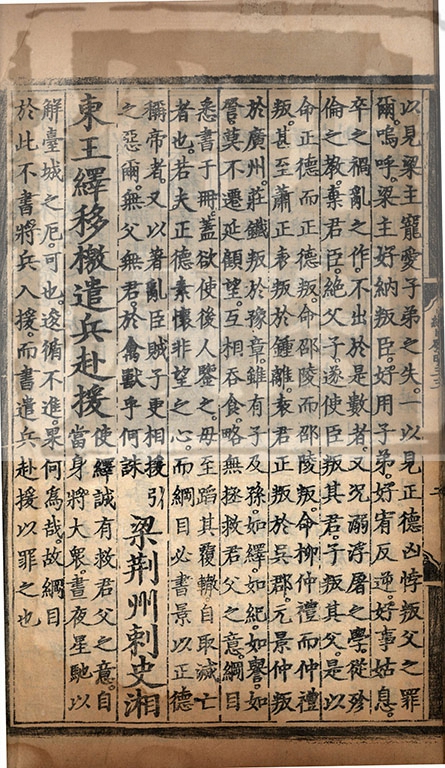 以見梁主寵愛子弟之失。以見正德凶悖叛父之罪
爾。嗚呼。梁主好納叛臣。好用子弟。好宥反逆。好事姑息。
卒之禍亂之作。不出於是數者。又况溺浮屠之學。從殄
倫之教。棄君臣。絕父子。遂使臣叛其君。子叛其父。是以
命正德而正德叛。命邵陵而邵陵叛。命柳仲禮而仲禮
叛。甚至蕭正表叛於鍾離。袁君正叛於吳郡。元景仲叛
於廣州。莊鐵叛於豫章。雖有子及孫。如繹。如紀。如譽。如
詧。莫不遷延顧望。互相吞食。略無拯救君父之意。綱目
悉書于冊。蓋欲使後人鑒之。毋至蹈其覆轍自取滅亡
者也。若夫正德素懷非望之心。而綱目必書景以正德
稱帝者。又以著亂臣賊子更相援引
之惡爾。無父無君。於禽獸乎何誅
梁荊州刺史湘
東王繹移檄遣兵赴援
使繹誠有救君父之意。自
當身將大衆。晝夜星馳以
解臺城之厄。可也。逡循不進。果何為哉。故綱目
於此不書將兵入援。而書遣兵赴援以罪之也